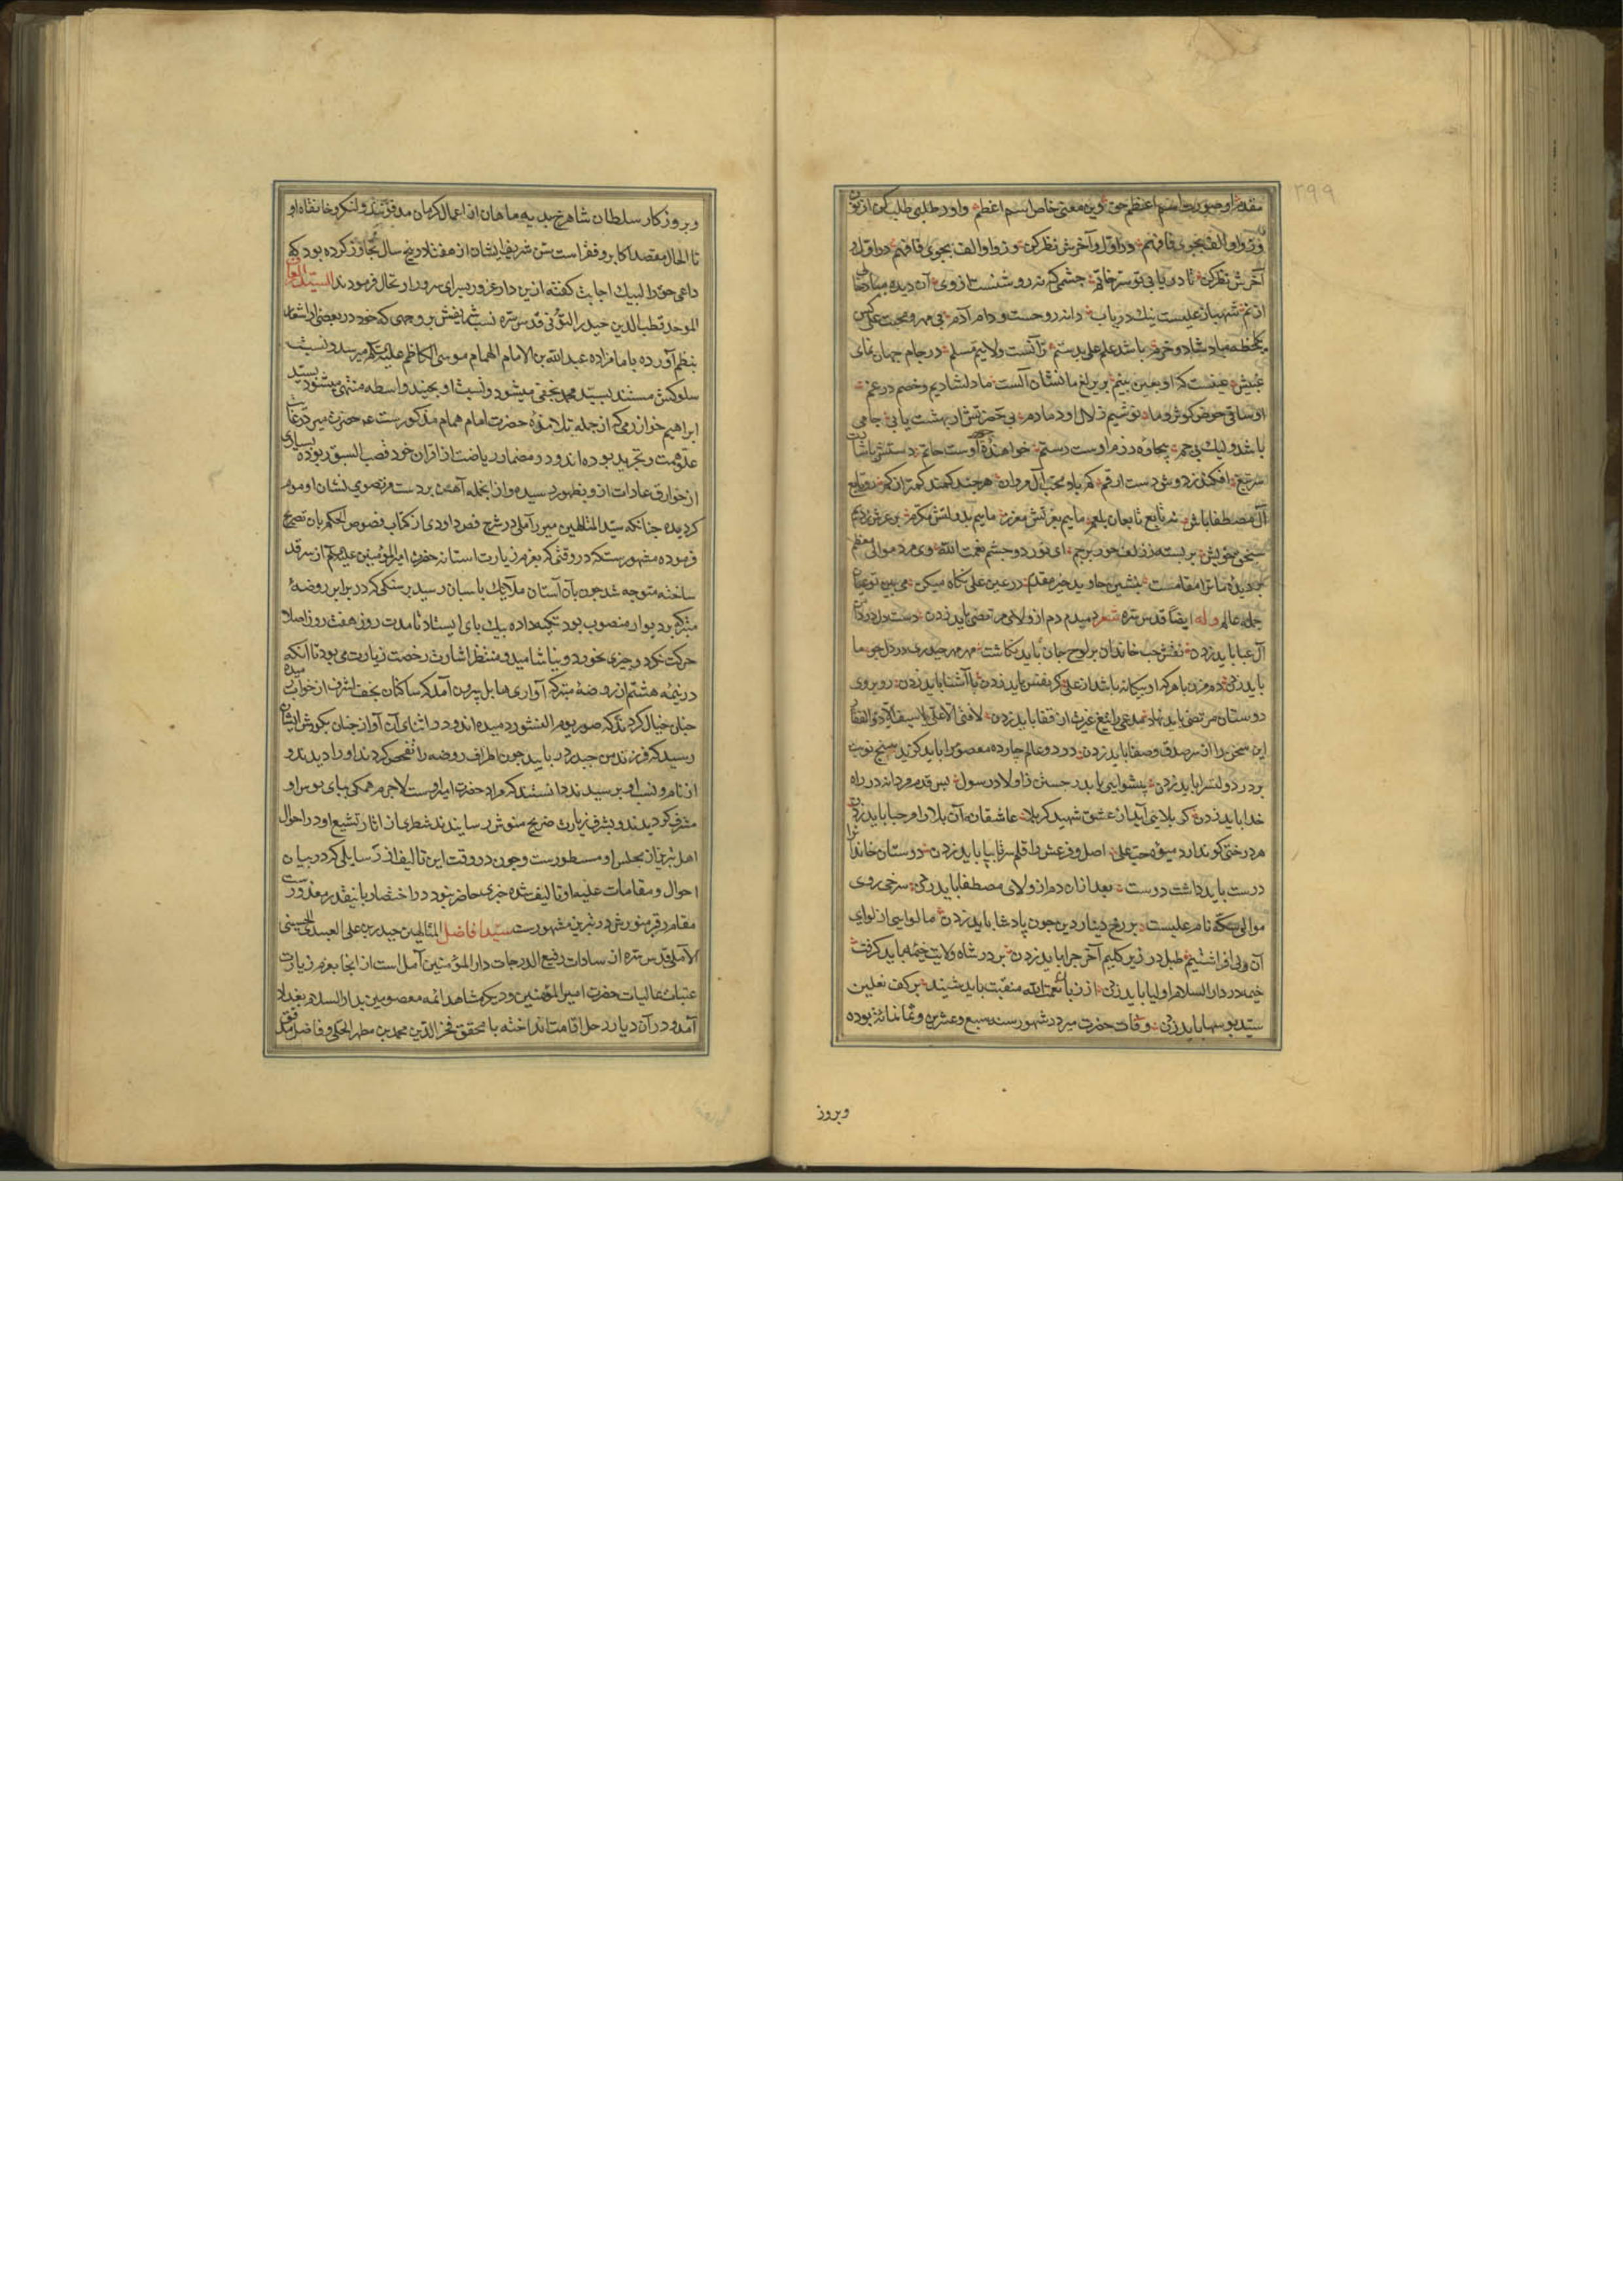 ۲۹۹
مقدم او صورت اسم اعظم حق وین معنی خاص اسم اعظم واو در طلبی طلب کن از نون
وز واو الف بجوی فافهم در اول و آخرش نظر کن وز واو الف بجوی فافهم در اول و
آخرش نظر کن تا دریابی تو سر خاتم چشمی که نه روشنست از وی آن دیده مباد
شهباز علیست نیک دریاب دانه روحست و دام آدم بی مهر و محبت علی کس
یکلحظه مباد شاد و خرم باشد علم علی بدستم زآنست ولایتم مسلم در جام جهان نمای
عینش عینست که او بعین بینم بر یرلغ ما نشان آلست ما دلشادیم و خصم در غم
او ساقی حوض کوثر و ما نوشیم زلال او دمادم بی حضرتش ار بهشت یابی جامی
باشد ولیک بی جم بیچاره رزم اوست رستم خواهنده اوست حاتم دستش باشارت
سر تیغ افکند ز دوش دست ارقم گر یاد محب آل مروان هرچند کمند کمتر از کم رو تابع
آل مصطفی باش نه تابع تابعان بلعم ماییم بعزتش معزز ماییم بدولتش مکرم بر عرش زدیم
سنجق خویش بر بسته ز زلف حور پرچم ای نور دو چشم نعمت الله وی مرد موالی معظم
بر دیده ما ترا مقامست بنشین جاوید خیر مقدم در عین علی نگاه میکن می بین تو عیان
جمله عالم وله ایضا قدس سره شعر دمبدم دم از ولای مرتضی باید زدن دست دل در دامن
آل عبا باید زدن نقش حب خاندان بر لوح جان باید نگاشت مهر مهر حیدری در دل چو ما
باید زدن دم مزن با هر که او بیگانه باشد از علی گر نفس باید زدن با آشنا باید زدن رو بروی
دوستان مرتضی باید نهاد مدعی را تیغ غیرت از قفا باید زدن لا فتی الا علی لا سیف الا ذوالفقار
این سخن را از سر صدق و صفا باید زدن در دو عالم چارده معصوم را باید گزید پنج نوبت
بر در دولتسرا باید زدن پیشوایی بایدت جستن ز اولاد رسول پس قدم مردانه در راه
خدا باید زدن گر بلایی آید از عشق شهید کربلا عاشقانه آن بلا را مرحبا باید زدن
هر درختی کو ندارد میوه حب علی اصل و فرعش را قلم سرتا بپا باید زدن دوستان خاندانرا
درست باید داشت دوست بعد از آن دم از ولای مصطفا باید زدن سرخی روی
موالی سکه نام علیست بر رخ دینار دین چون پادشا باید زدن ما لوایی از لوای
آن ولی افراشتیم طبل در زیر گلیم آخر چرا باید زدن بر در شاه ولایت خیمه باید گرفت
خیمه در دار السلام اولیا باید زدن از زبان نعمت الله منقبت باید شنید بر کف نعلین
سید بوسها باید زدن وفات حضرت میر در شهور سنه سبع و عشرین و ثمانمائة بوده
وبروز
وبروزکار سلطان شاهرخ بدیه ماهان از اعمال کرمان مدفون شد ولنکر وخانقاه او
تا الحال مقصد اکابر وفقراست سن شریف ایشان از هفتاد وپنج سال تجاوز کرده بود که
داعی حق را لبیک اجابت گفته ازین دار غرور بسرای سرور ارتحال فرمودند السید العارف
الموحد قطب الدین حیدر التونی قدس سره نسب شریفش بر وجهی که خود در بعضی از اشعار
بنظم آورده بامامزاده عبد الله بن الامام الهمام موسی الکاظم علیه السلام میرسد ونسبت
سلوکش مستند بسید محمد نجفی میشود ونسبت او بچند واسطه منتهی میشود بسید
ابراهیم خوارزمی که از جمله تلامذه حضرت امام همام مذکورست حضرت میر در غایت
علو همت وتجرید بوده اند ودر مضمار ریاضت از اقران خود قصب السبق ربوده بسیاری
از خوارق عادات از او بظهور رسیده واز انجمله آهن بر دست مرتضوی نشان او موم
کردیده چنانکه سید المتالهین میر حیدر آملی در شرح فص داودی از کتاب فصوص الحکم بان تصریح
فرموده مشهورست که در وقتی که بعزم زیارت آستانه حضرت امیرالمؤمنین علیه السلام از سر قدم
ساخته متوجه شد چون بآن آستان ملایک پاسبان رسید بر سنگی که در برابر روضهٔ
متبرکه بر دیوار منصوب بود تکیه داده بیک پای ایستاد تا مدت روز هفت روز اصلا
حرکت نکرد وچیزی نخورد ونیاشامید ومنتظر اشارت رخصت زیارت می بود تا آنکه
در نیمه هشتم از روضه متبرکه آوازی هایل بیرون آمد که ساکنان نجف اشرف از خواب رمیده
چنان خیال کردند که صور یوم النشور دمیده اند ودر اثنای آن آواز چنان بگوش ایشان
رسید که فرزند من حیدر را دریابید چون اطراف روضه را تفحص کردند او را دیدند و
از نام ونسب او پرسیدند دانستند که مراد حضرت امیر اوست لاجرم همگی بپای بوس او
مشرف گردیدند وبشرف زیارت ضریح منورش رسانیدند شطری از آثار تشیع او در احوال
اهل تبریز از مجلس او مسطورست وچون در وقت این تالیف از رسایلی که در بیان
احوال ومقامات علیه او تالیف شده چیزی حاضر نبود در اختصار باینقدر معذورست
مقام ومرقد منورش در تبریز مشهورست سید افاضل المتالهین حیدر بن علی العبیدلی الحسینی
الآملی قدس سره از سادات رفیع الدرجات دار المؤمنین آمل است از انجا بعزم زیارت
عتبات عالیات حضرت امیرالمؤمنین ودیگر مشاهد ائمه معصومین بدار السلام بغداد
آمد ودر آن دیار رحل اقامت انداخته با محقق فخر الدین محمد بن مطهر الحلی وفاضل مدقق